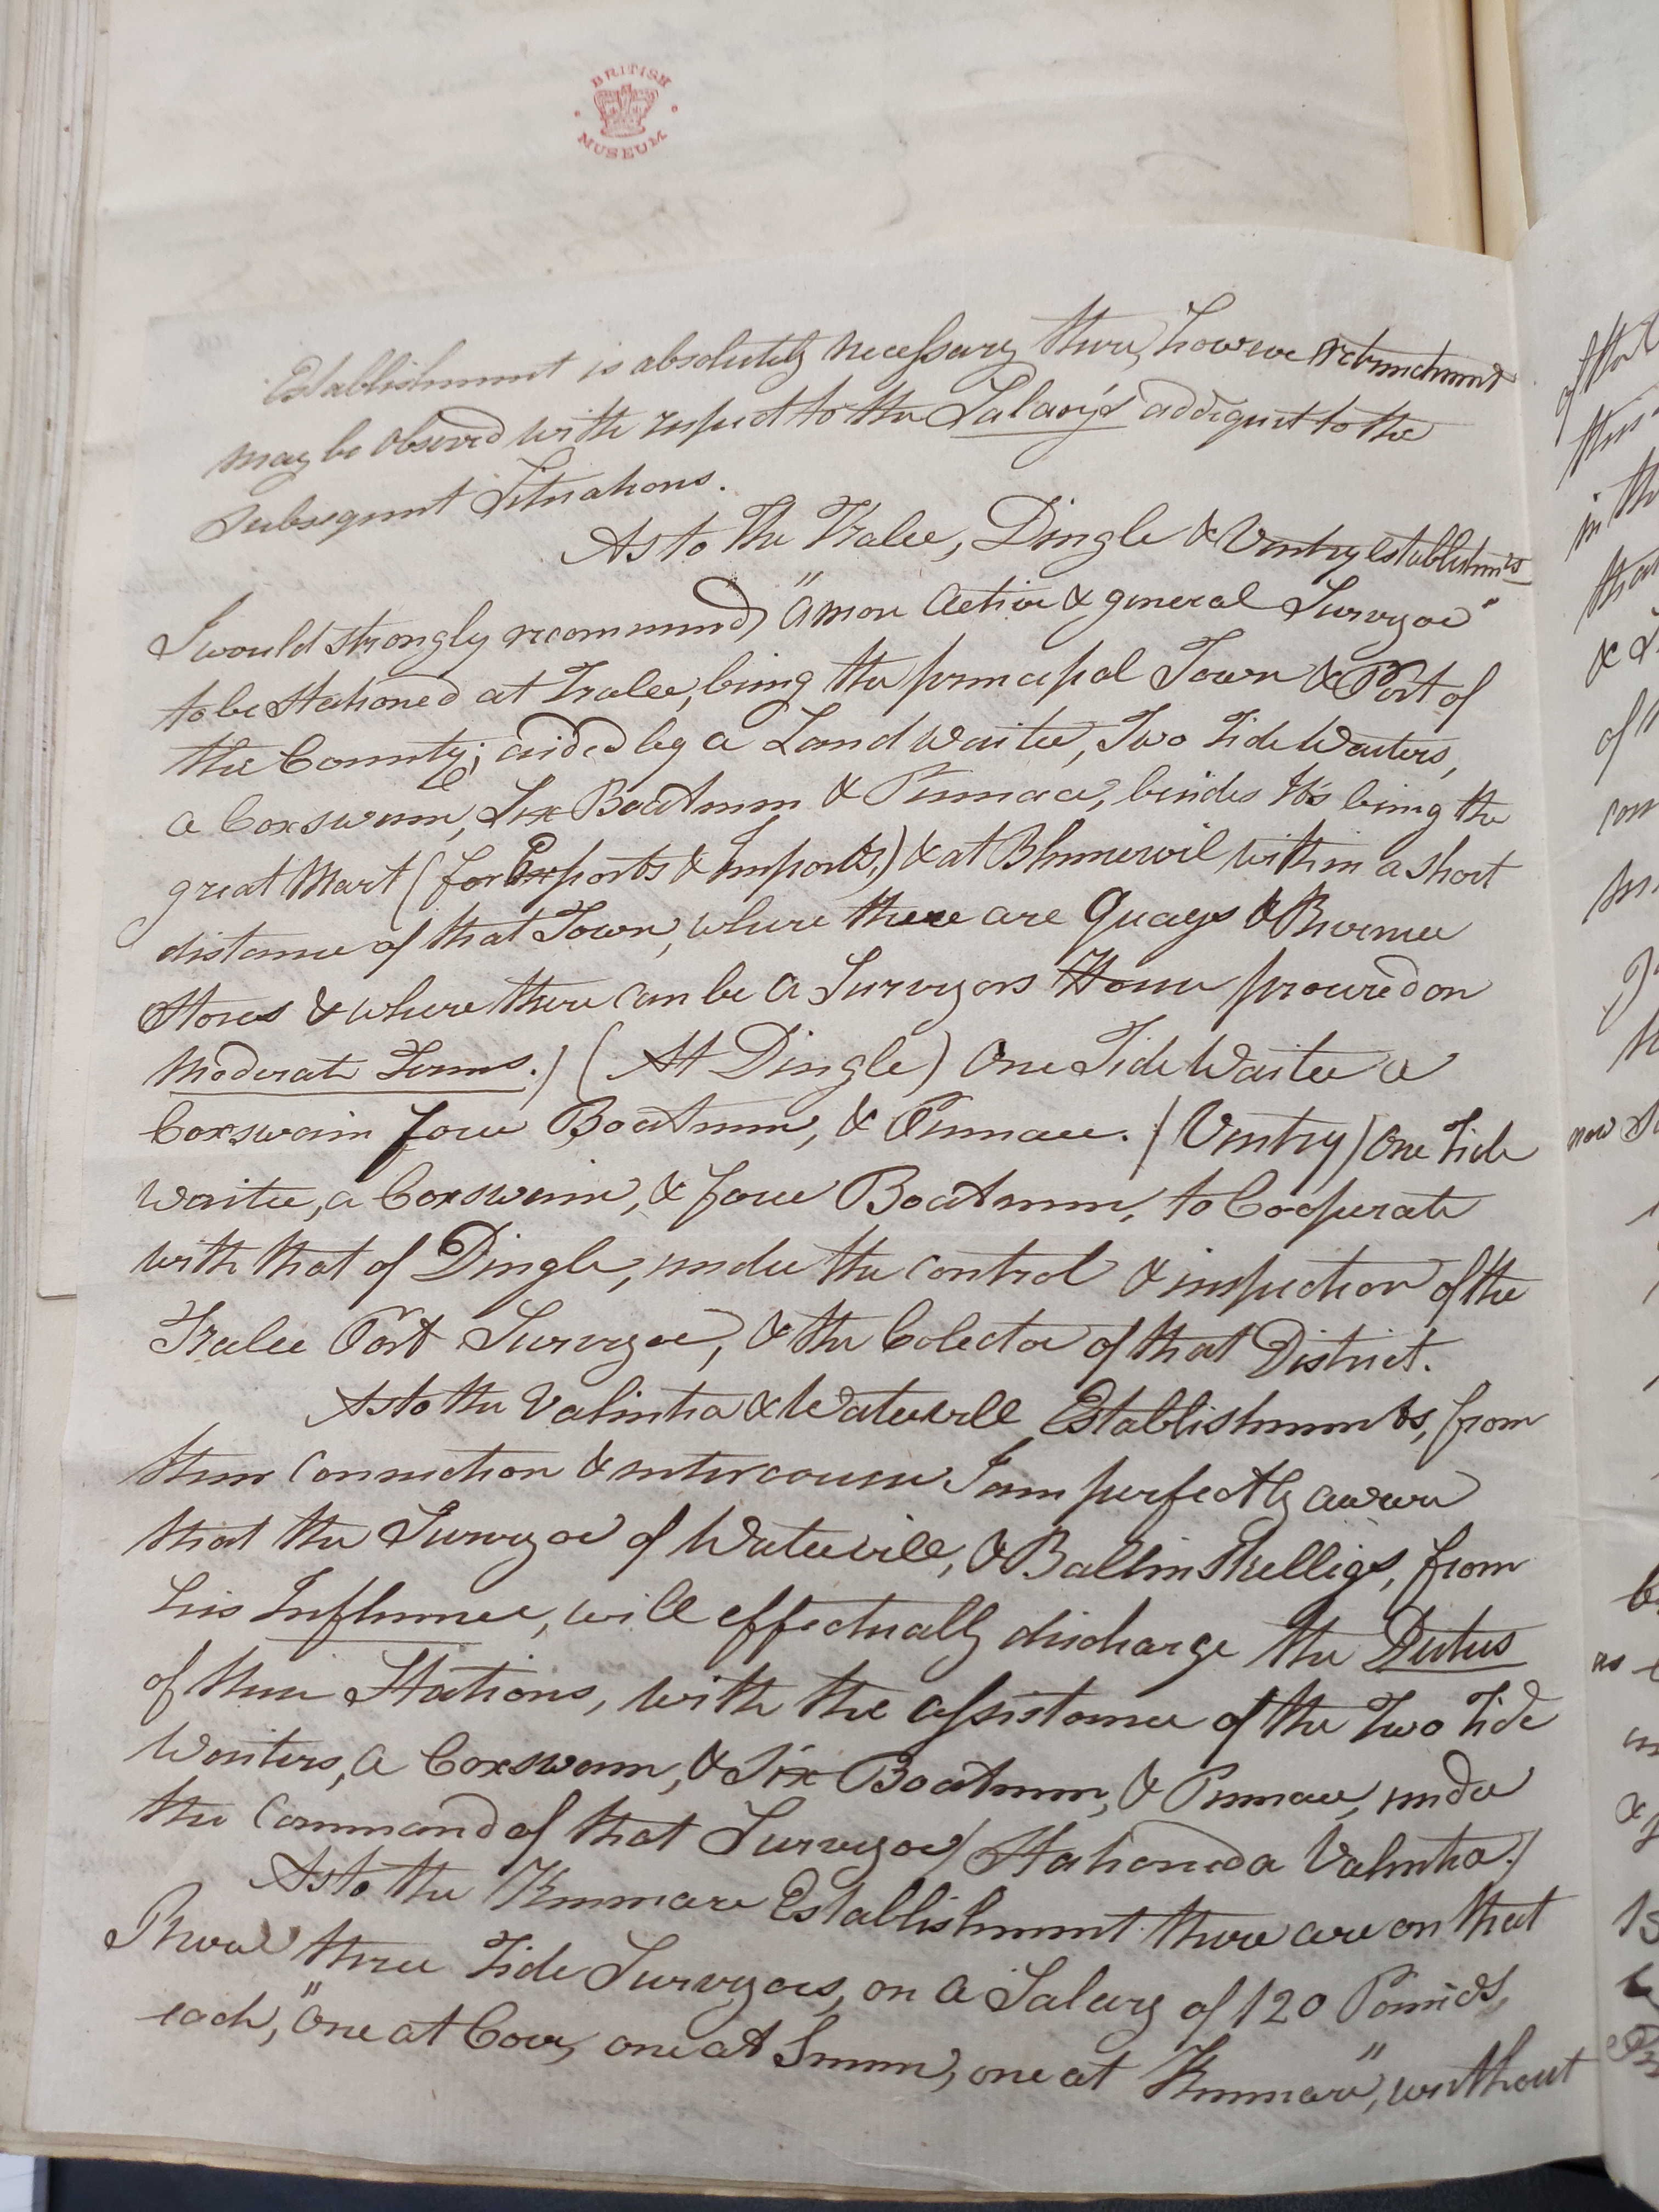 BRITISH
MUSEUM
Establishment is absolutely necessary there, however retrenchment
may be observed with respect to the Salary's addequit to the
Subsequent Situations.
As to The Tralee, Dingle & Ventry establishmts
I would strongly recommend, "a more Active & general Surveyor"
to be Stationed at Tralee, being the principal Town & Port of
the County; aided by a Land Waiter, Two Tide Waiters,
a Coxswain, Six Boatmen & Pinnace, besides It's being the
great Mart (for Exports & Imports,) & at Blennervil within a short
distance of that Town, where there are Quays & Revenue
Stores & where there can be a Surveyors House procured on
Moderate Terms.) (At Dingle) One Tide Waiter a
Coxswain four Boatmen, & Pinnace. (Ventry) One Tide
Waiter, a Coxswain, & four Boatmen, to Cooperate
with that of Dingle, under the Control & inspection of the
Tralee Port Surveyor, & the Colector of that District.
As to the Valintia & Watervill Establishments, from
their Connection & intercourse I am perfectly aware
that the Surveyor of Waterville, & Ballinskelligs, from
his Influence, will effectually discharge the Duties
of their Stations, with the assistance of the Two Tide
Waiters, a Coxswain, & Six Boatmen, & Pinnace, under
the Command of that Surveyor (Stationed a Valintia.)
As to the Kenmare Establishment there are on that
River three Tide Surveyors, on a Salary of 120 Pounds,
each, "One at Cove, one at Sneem, one at Kenmare", without